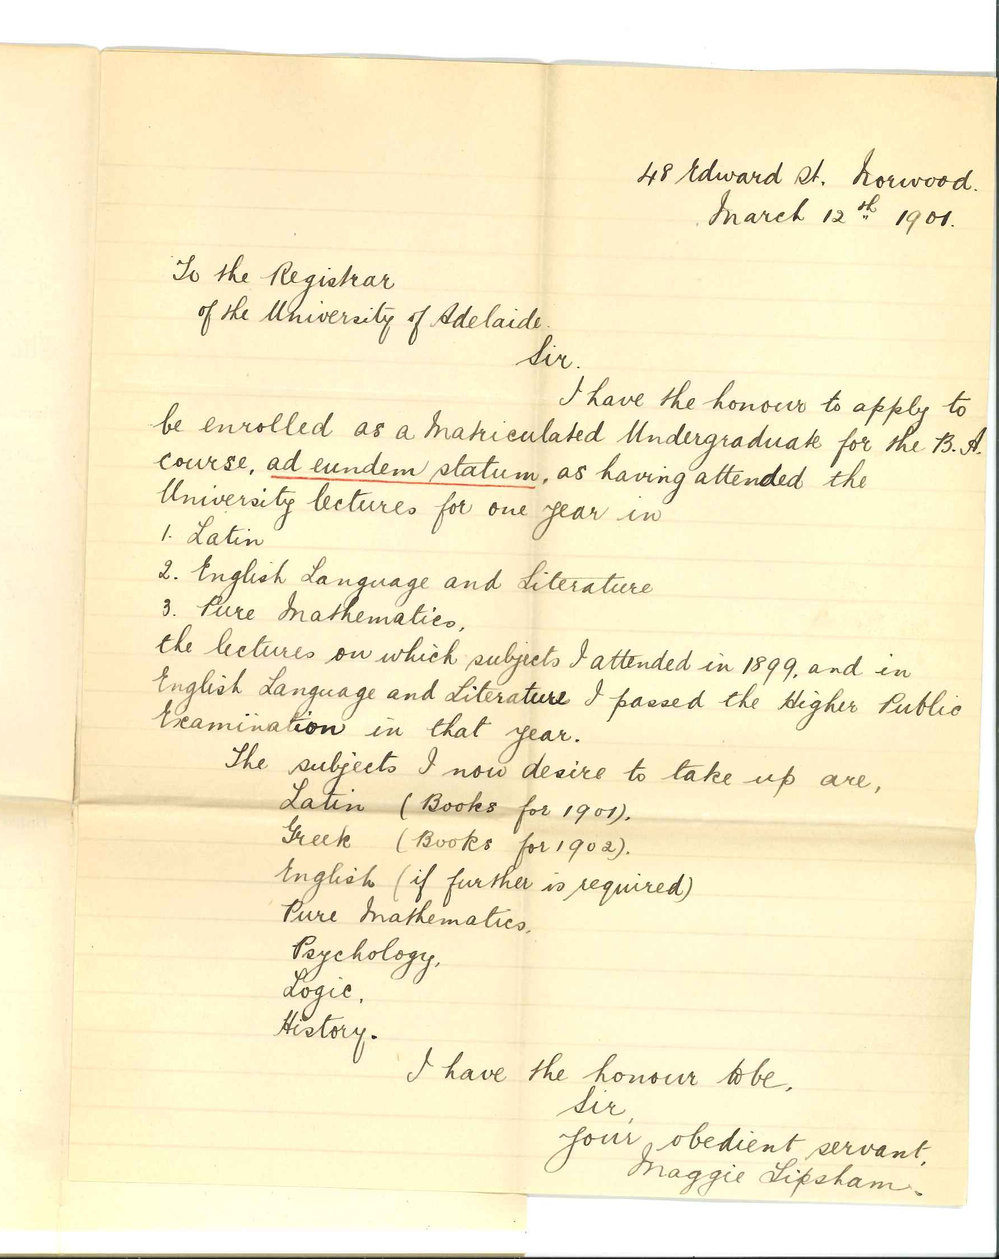 48 Edward St. Norwood.
March 12th 1901.
To the Registrar
of the University of Adelaide.
Sir.
I have the honour to apply to
be enrolled as a Matriculated Undergraduate for the B.A.
course, ad eundem statum, as having attended the
University lectures for one year in
1. Latin
2. English Language and Literature
3. Pure Mathematics,
the lectures on which subjects I attended in 1899, and in
English Language and Literature I passed the Higher Public
Examination in that year.
The subjects I now desire to take up are,
Latin (Books for 1901).
Greek (Books for 1902).
English (if further is required)
Pure Mathematics,
Psychology,
Logic,
History.
I have the honour to be,
Sir,
your obedient servant,
Maggie Lipsham.